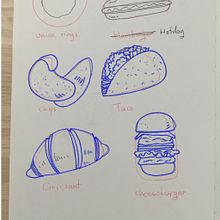 onion rings
Hamburger Hotdog
chips
Taco
Croissant
cheeseburger